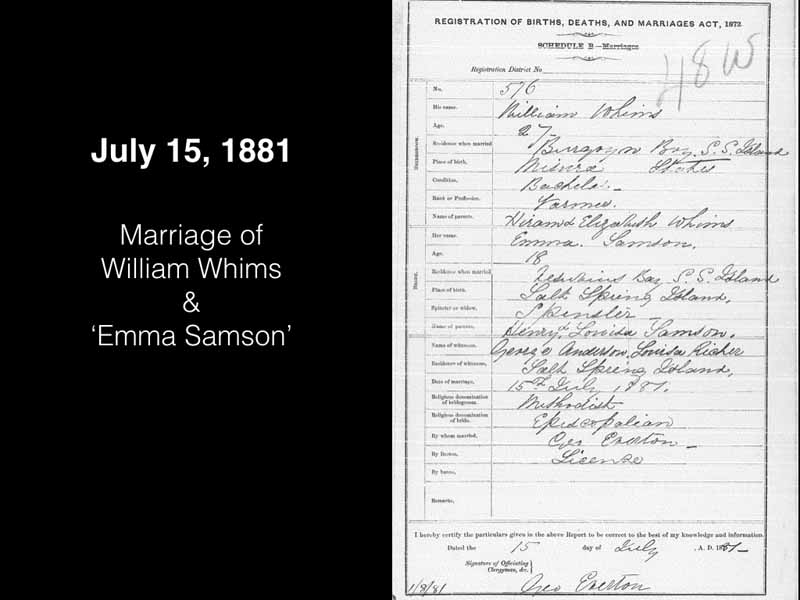 July 15, 1881
Marriage of
William Whims
&
‘Emma Samson’
REGISTRATION OF BIRTHS, DEATHS, AND MARRIAGES ACT, 1872
SCHEDULE B—Marriages
Registration District No
48 W
Bridegroom.
No. 576
His name. William Whims
Age. 27
Residence when married Burgoyn Bay S. S. Island
Place of birth. States
Condition. Bachelor
Rank or Profession. Farmer.
Name of parents. Hiram & Elizabeth Whims
Bride.
Her name. Emma. Samson.
Age. 18
Residence when married Bay S. S. Island
Place of birth. Salt Spring Island,
Spinster or widow. Spinster
Name of parents. Henry & Louisa Samson.
Name of witnesses. George Anderson, Louisa Richer
Residence of witnesses. Salt Spring Island,
Date of marriage. 15th July, 1881.
Religious denomination of bridegroom. Methodist
Religious denomination of bride. Episcopalian
By whom married. Geo Everton
By license. License
By banns.
Remarks.
I hereby certify the particulars given in the above Report to be correct to the best of my knowledge and information.
Dated the 15 day of July, A. D. 1881
Signature of Officiating Clergyman, &c. Geo Everton
1/8/81